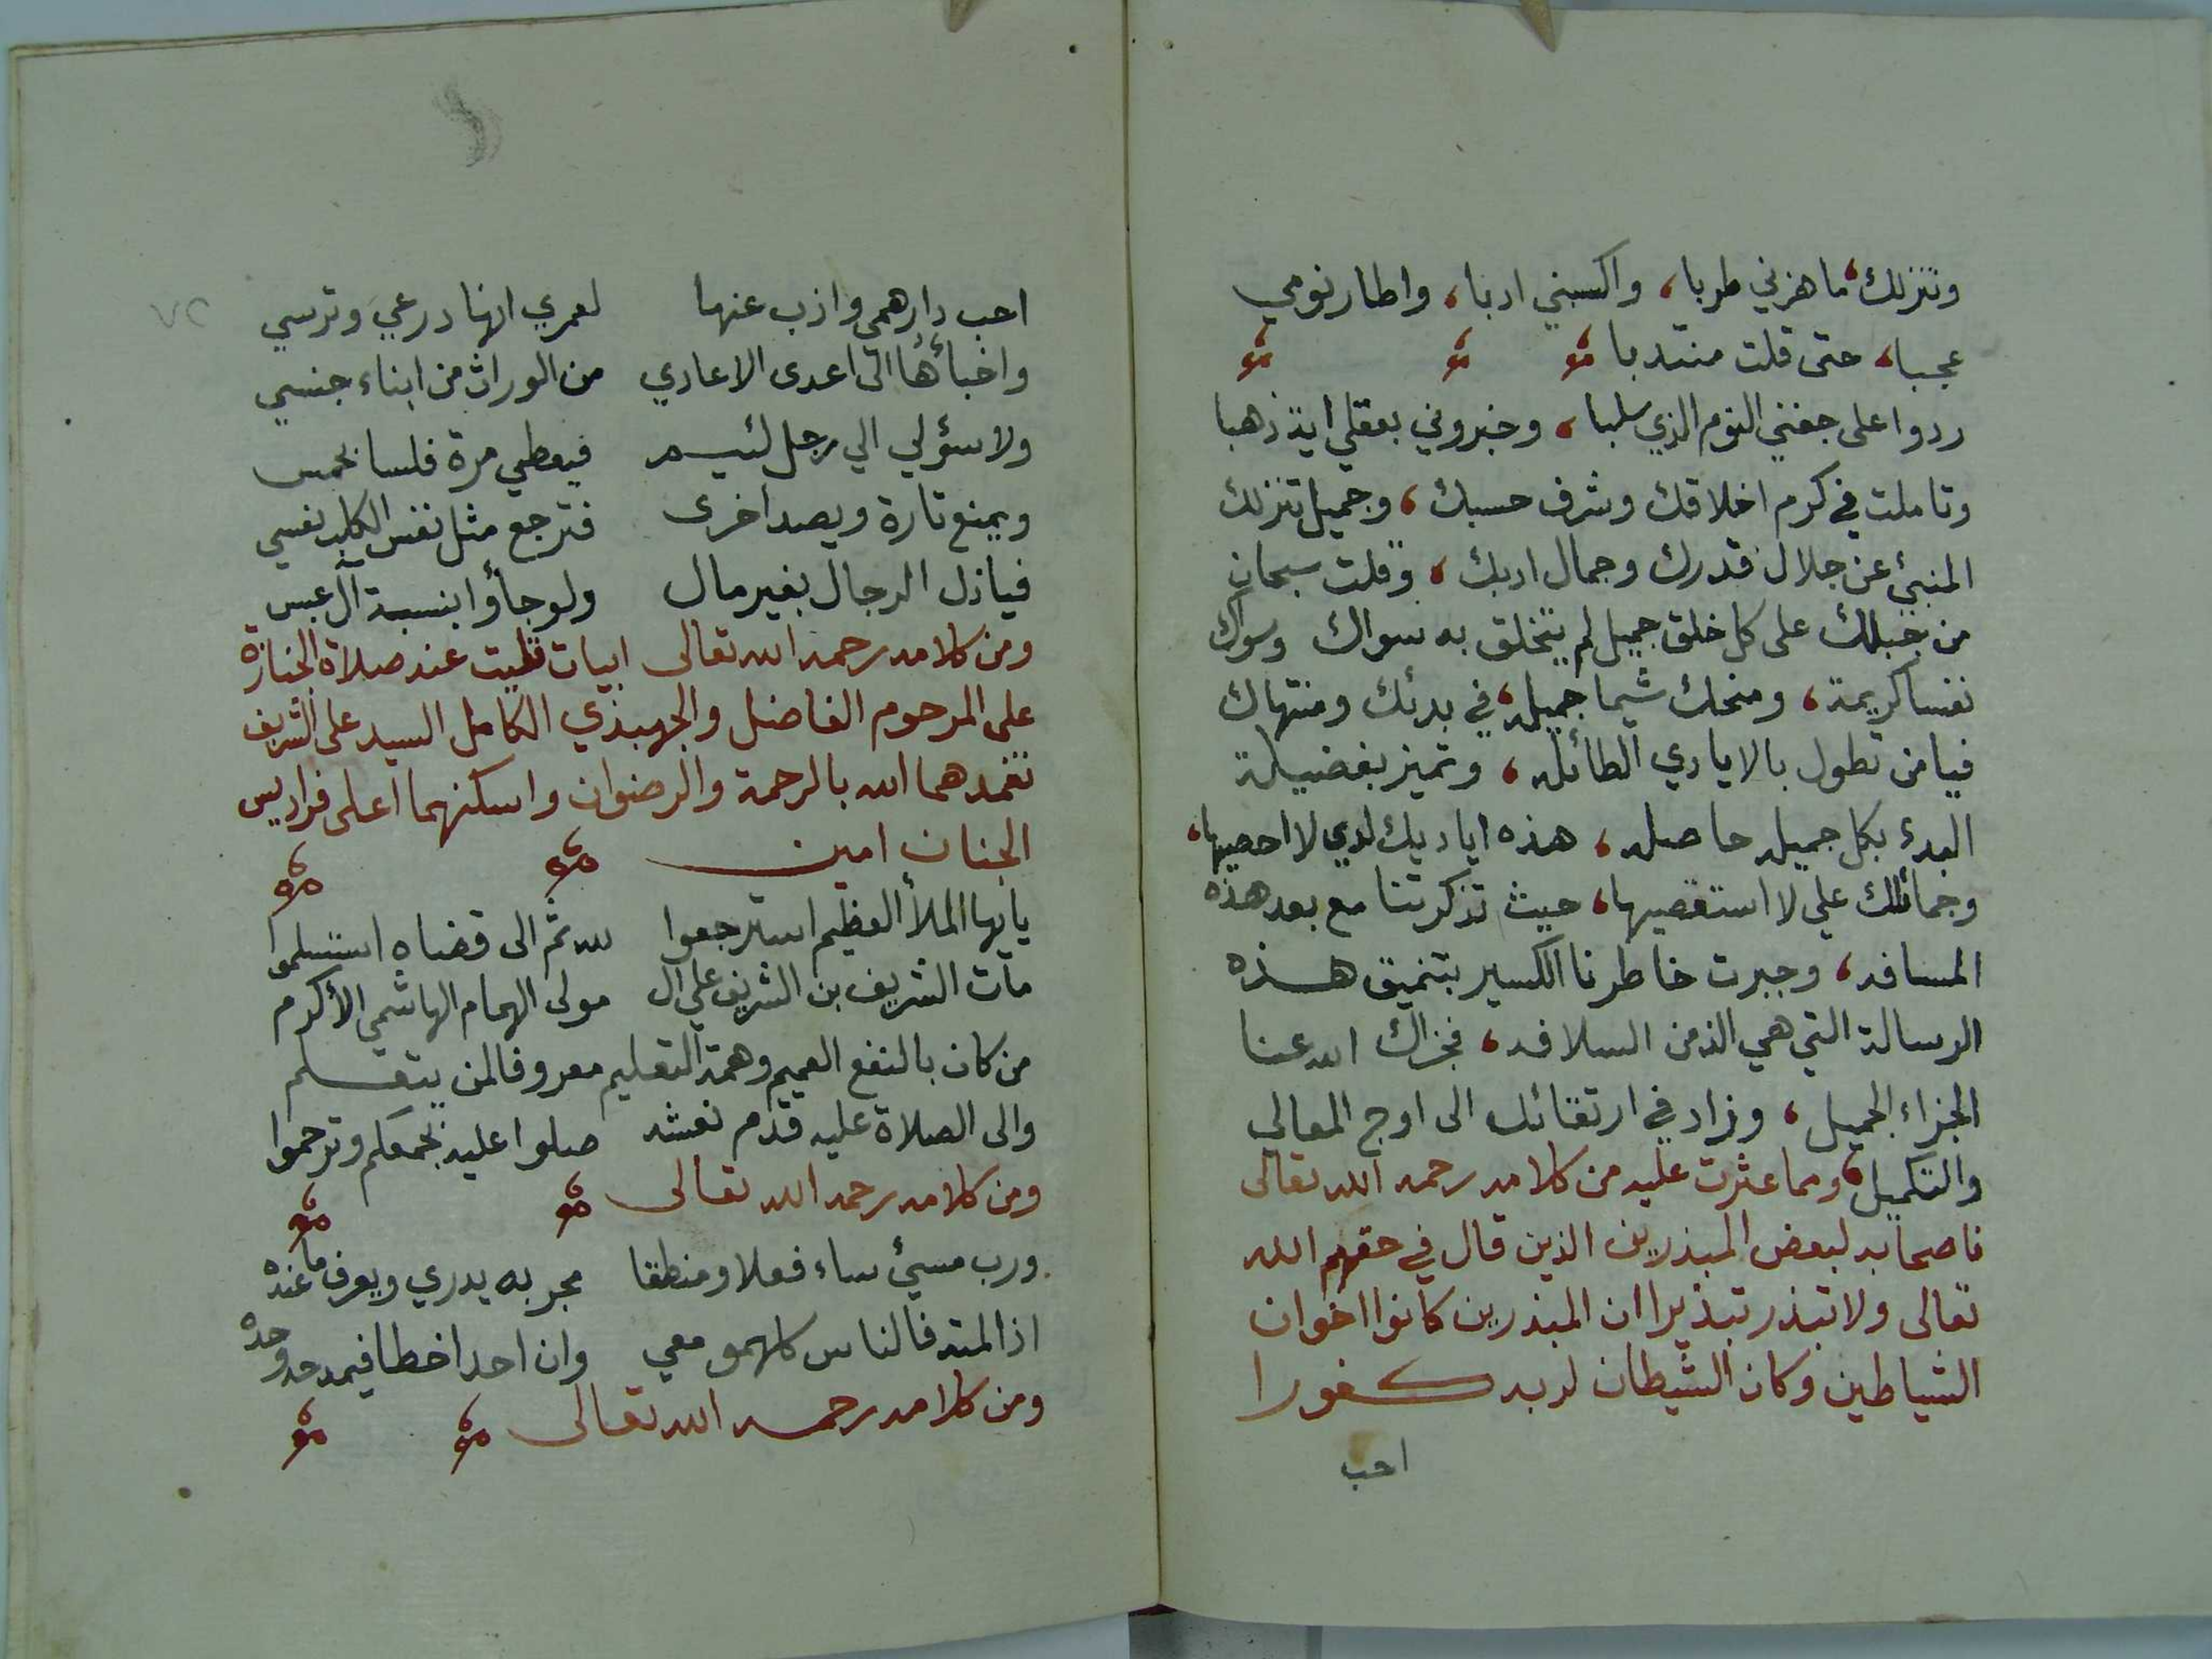 وتنزلك، ما هزني طربا، واكسبني ادبا، واطار نومي
عجبا، حتى قلت منتدبا
ردوا على جفني النوم الذي سلبا، وخبروني بعقلي اية ذهبا
وتاملت في كرم اخلاقك وشرف حسبك، وجميل تنزلك
المنبئ عن جلال قدرك وجمال ادبك، وقلت سبحان
من جبلك على كل خلق جميل لم يتخلق به سواك وسواك
نفسا كريمة، ومنحك شيما جميلة، في بدئك ومنتهاك
فيا من تطول بالايادي الطائلة، وتميز بفضيلة
البدء بكل جميلة حاصلة، هذه اياديك لدي لا احصيها،
وجمائلك علي لا استقصيها، حيث تذكرتنا مع بعد هذه
المسافة، وجبرت خاطرنا الكسير بتنميق هذه
الرسالة التي هي الذ من السلافة، فجزاك الله عنا
الجزاء الجميل، وزاد في ارتقائك الى اوج المعالي
والتكميل، ومما عثرت عليه من كلامه رحمه الله تعالى
ناصحا به لبعض المبذرين الذين قال في حقهم الله
تعالى ولا تبذر تبذيرا ان المبذرين كانوا اخوان
الشياطين وكان الشيطان لربه كفورا
احب
٧٢
احب دارهمي واذب عنها لعمري انها درعي وترسي
واخبأها الى اعدى الاعادي من الوراث من ابناء جنسي
ولا سؤلي الي رجل لئيم فيعطي مرة فلسا بخمس
ويمنع تارة ويصد اخرى فترجع مثل نفس الكلب نفسي
فياذل الرجال بغير مال ولو جاؤا بنسبة آل عبس
ومن كلامه رحمه الله تعالى ابيات تليت عند صلاة الجنازة
على المرحوم الفاضل والجهبذي الكامل السيد على الشريف
تغمدهما الله بالرحمة والرضوان واسكنهما اعلى فراديس
الجنان امين
يا ايها الملأ العظيم استرجعوا لله ثم الى قضاه استسلموا
مات الشريف بن الشريف علي ال مولى الهمام الهاشمي الأكرم
من كان بالنفع العميم وهمة التعليم معروفا لمن يتعلم
والى الصلاة عليه قدم نعشه صلوا عليه بجمعكم وترحموا
ومن كلامه رحمه الله تعالى
ورب مسيئ ساء فعلا ومنطقا مجر به يدري ويعرف ما عنده
اذا لمته فالناس كلهمو معي وان احد اخطا فيمدحه وحده
ومن كلامه رحمه الله تعالى